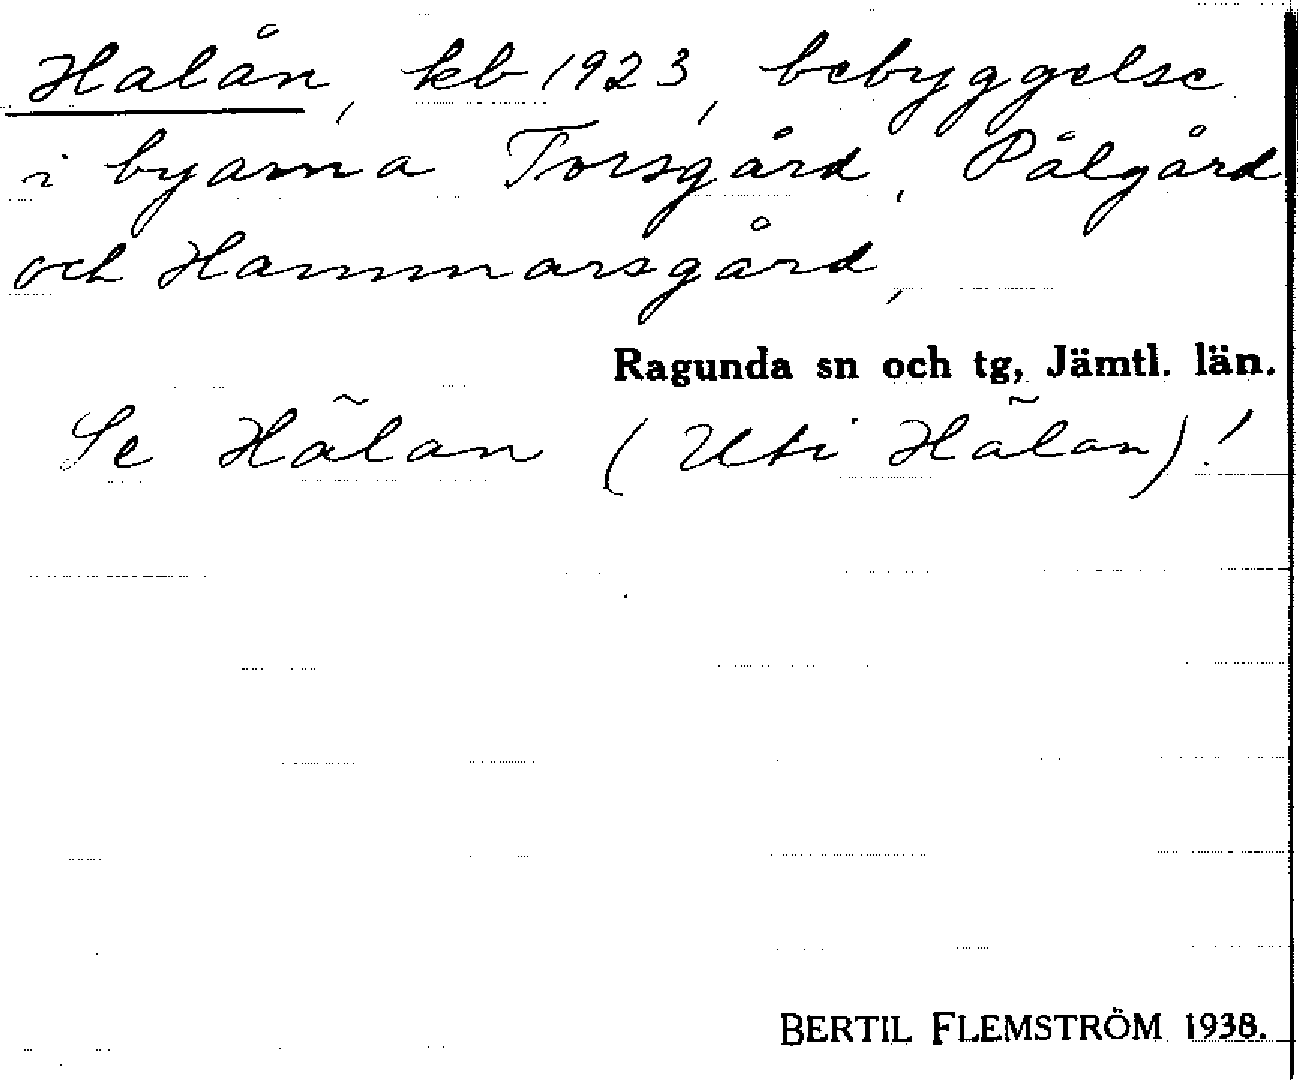 Halån, kb 1923, bebyggelse
i byarna Torsgård, Pålgård
och Hammarsgård,
Ragunda sn och tg, Jämtl. län.
Se Hãlan (Uti Hãlan)!
BERTIL FLEMSTRÖM 1938.